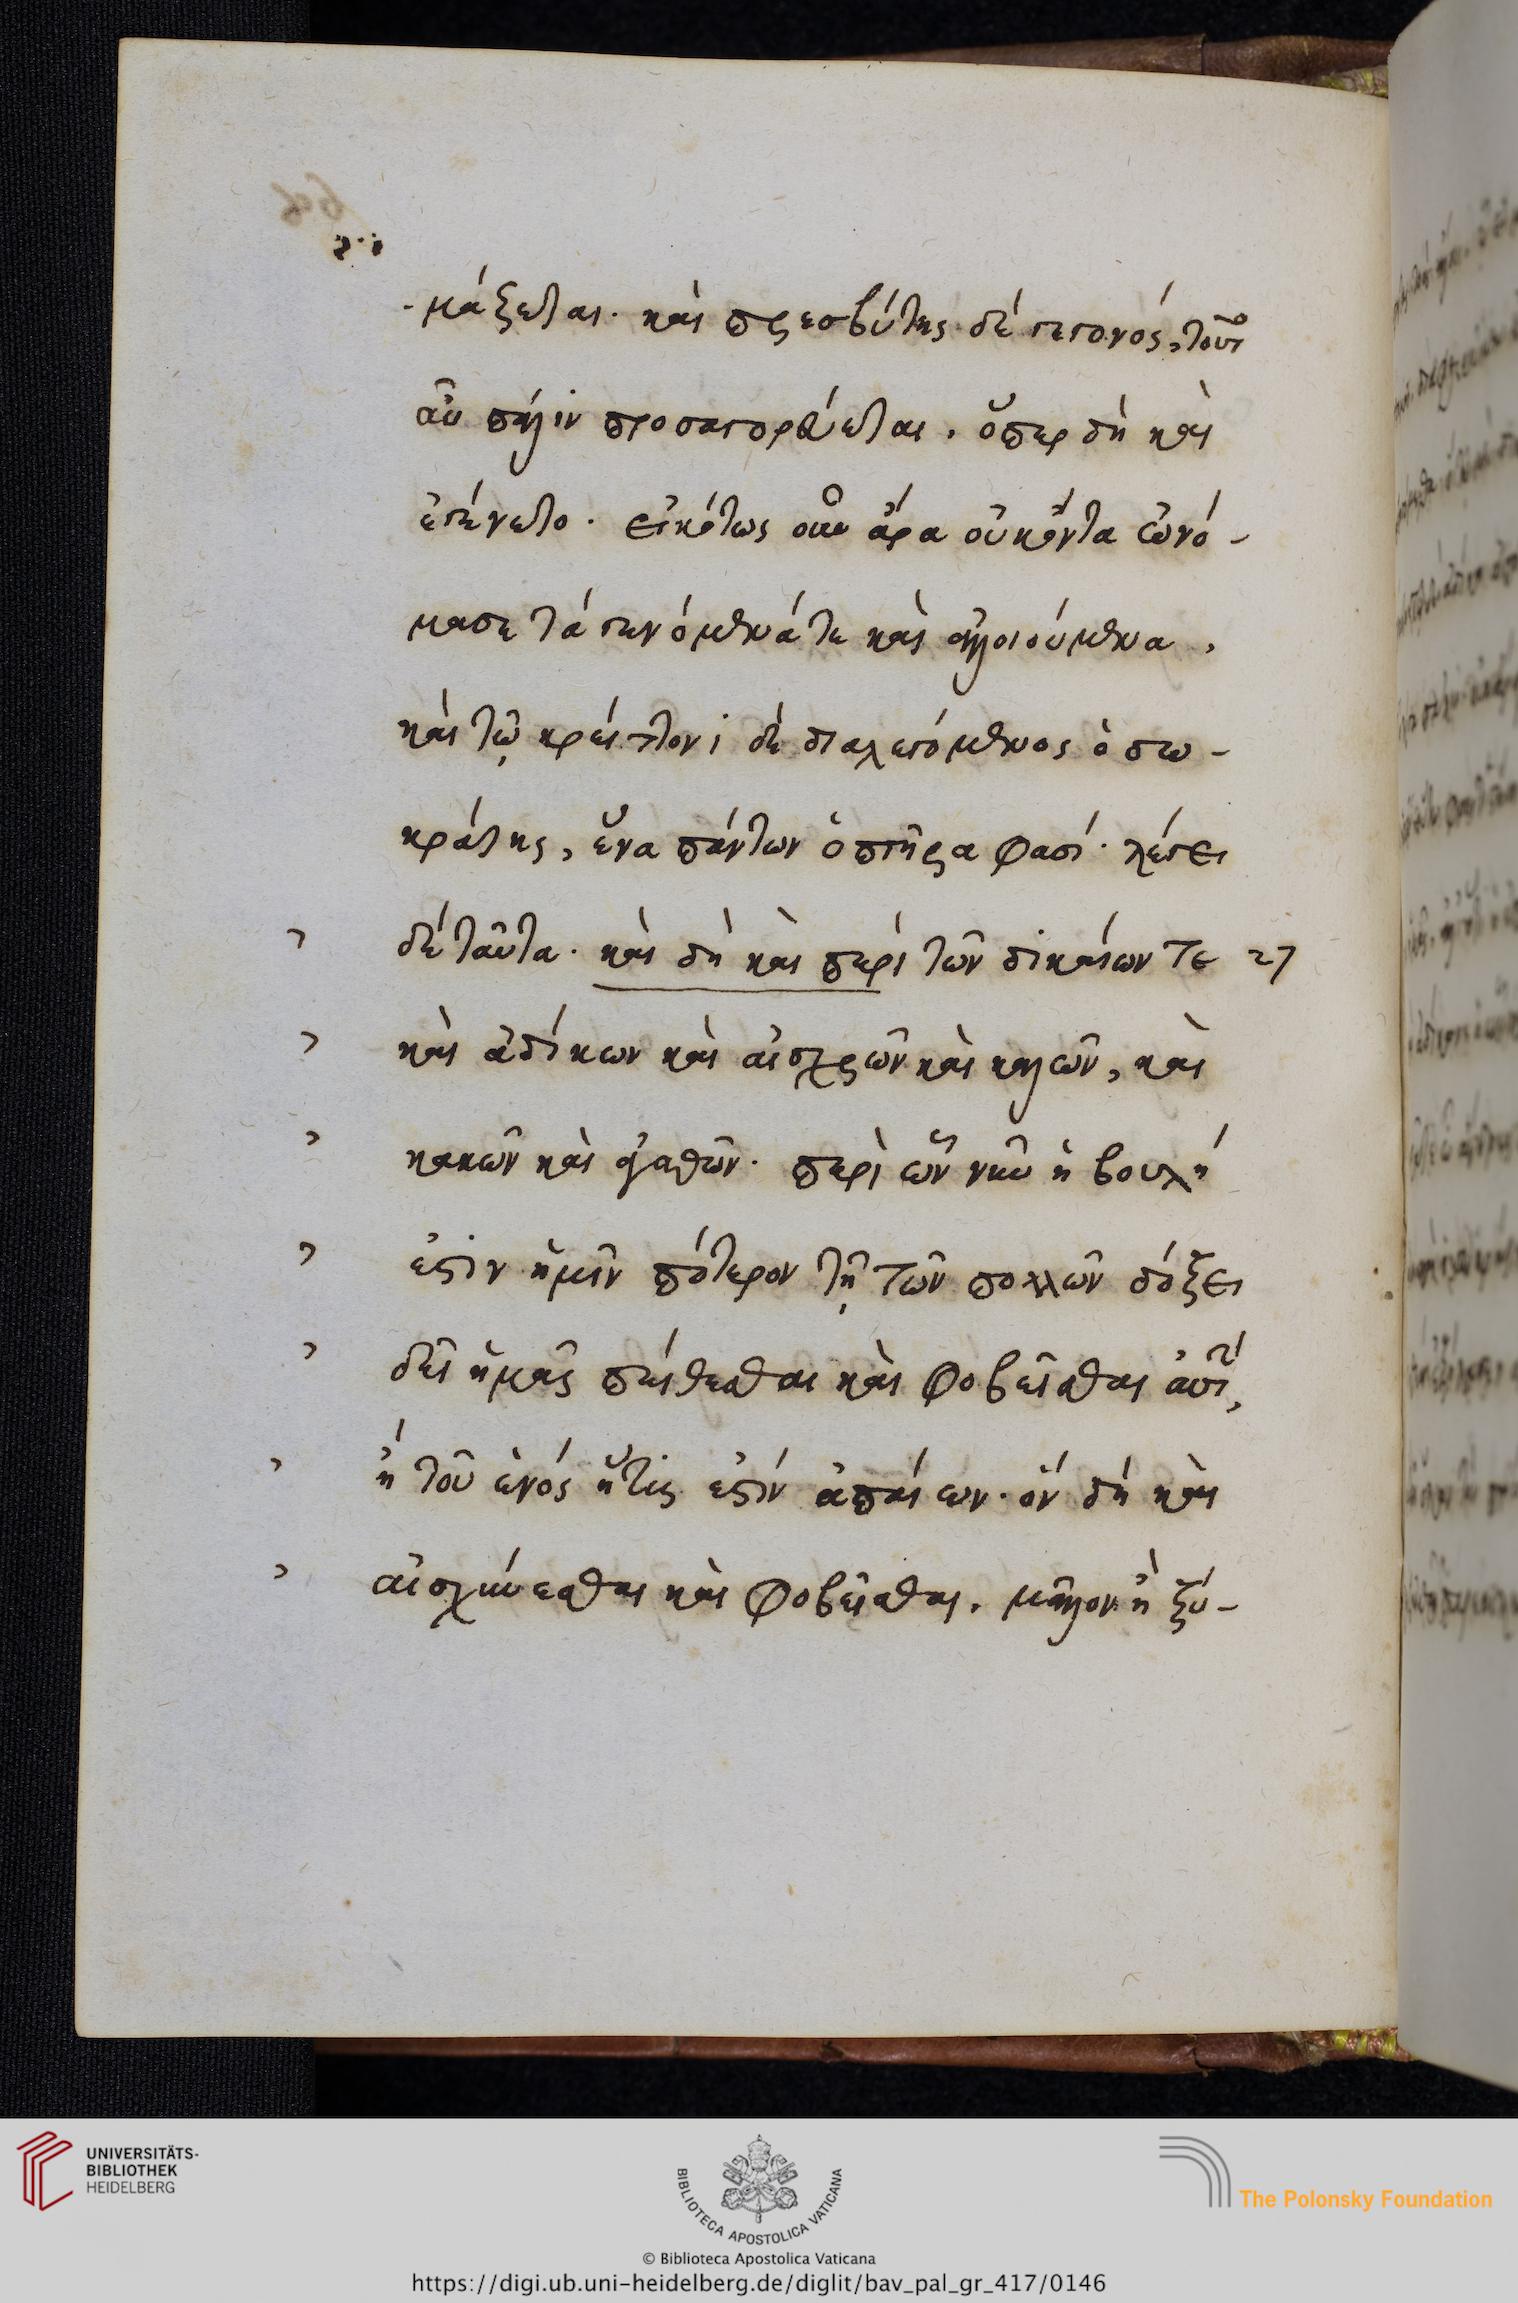 μάζεται. καὶ πρεσβύτης δὲ γεγονός, τοῦτο
αὖ πάλιν προσαγορεύεται. ὅπερ δὴ καὶ
ἐγένετο. εἰκότως οὖν ἄρα οὐκ ὄντα ὠνό-
μασε τά γενόμενά τε καὶ ἀλλοιούμενα,
καὶ τῷ κρείττονι δὲ διαλεγόμενος ὁ σω-
κράτης, ἕνα πάντων ὀπτῆρα φασί. λέγει
δὲ ταῦτα. καὶ δὴ καὶ περὶ τῶν δικαίων τε 27
καὶ ἀδίκων καὶ αἰσχρῶν καὶ καλῶν, καὶ
κακῶν καὶ ἀγαθῶν. περὶ ὧν νῦν ἡ βουλή
ἐστιν ἡμῖν πότερον τῇ τῶν πολλῶν δόξει
δεῖ ἡμᾶς πείθεσθαι καὶ φοβεῖσθαι αὐτήν,
ἢ τοῦ ἑνός ἥτις ἐστίν ἐπαίων. ὃν δὴ καὶ
αἰσχύνεσθαι καὶ φοβεῖσθαι. μᾶλλον ἢ ξύ-
UNIVERSITÄTS-
BIBLIOTHEK
HEIDELBERG
BIBLIOTECA APOSTOLICA VATICANA
The Polonsky Foundation
© Biblioteca Apostolica Vaticana
https://digi.ub.uni-heidelberg.de/diglit/bav_pal_gr_417/0146